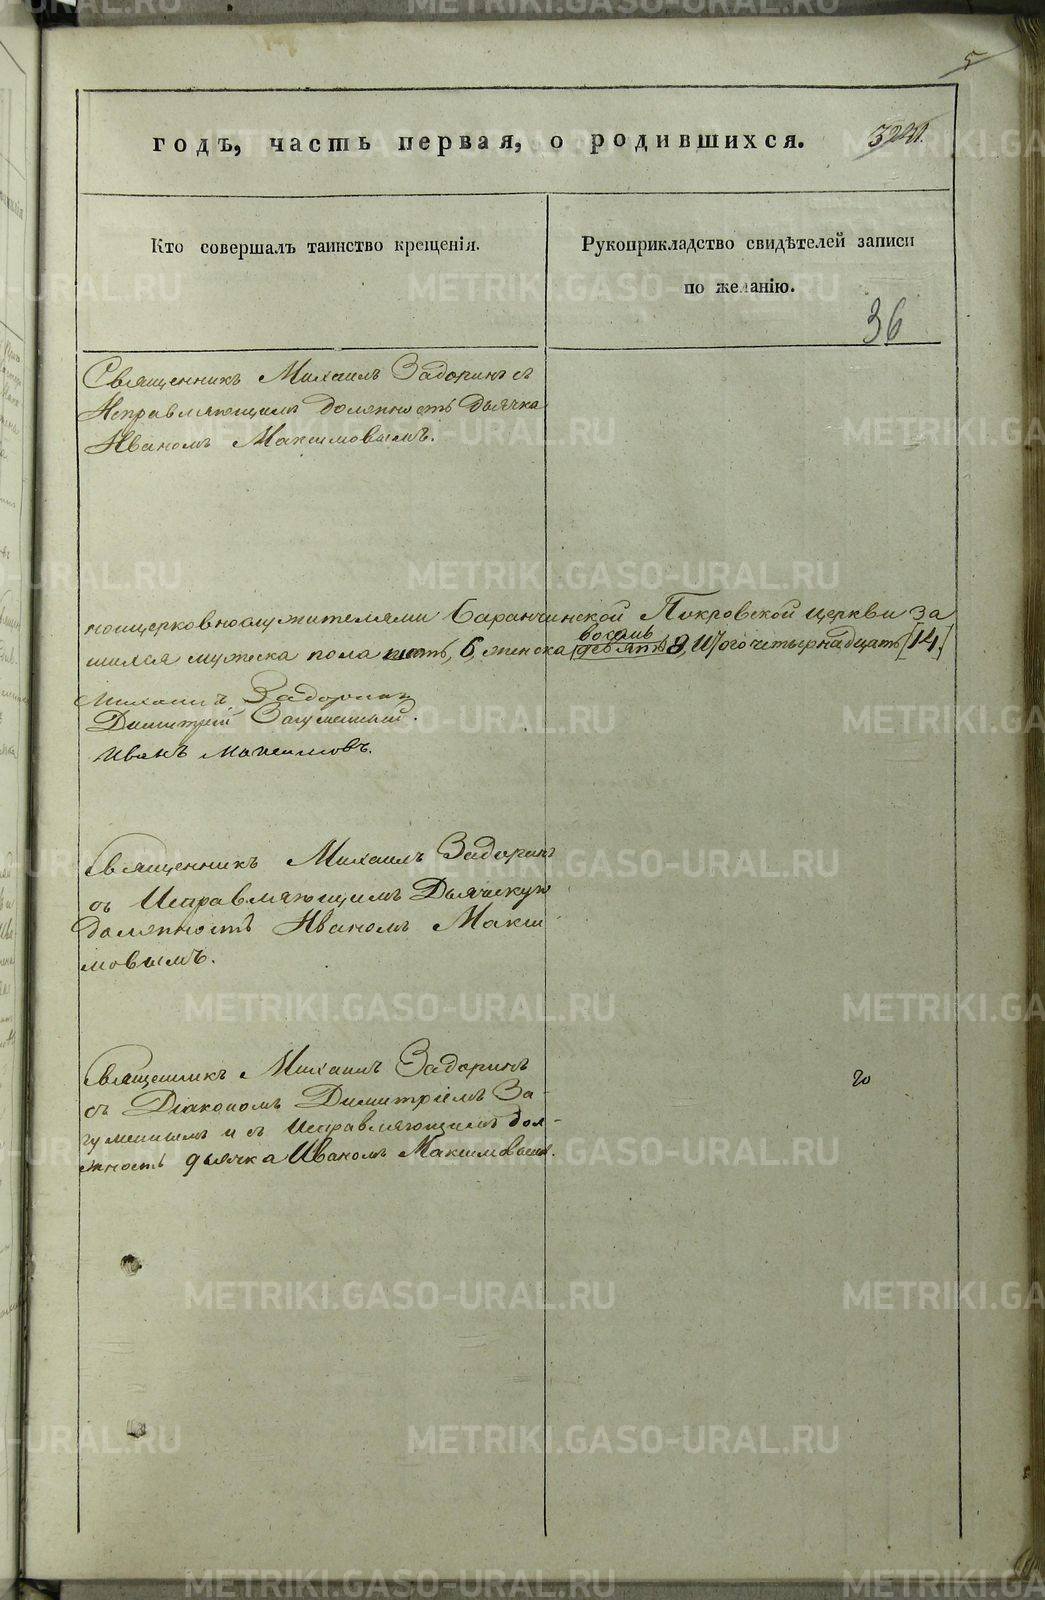 5
годъ, часть первая, о родившихся.
Кто совершалъ таинство крещенія.
Рукоприкладство свидѣтелей записи
по желанію.
36
Священникъ Михаилъ Задоринъ съ
Исправляющимъ должность Дьячка
Иваномъ Максимовымъ.
Баранчинской Покровской церкви за
восемь
мужеска пола шесть, 6, женска девять 8, Итого четырнадцать [14.]
Михаилъ Задоринъ
Димитрій Загуменный.
Иванъ Максимовъ.
Священникъ Михаилъ Задоринъ
съ Исправляющимъ Дьяческую
должность Иваномъ Макси
мовымъ.
Священникъ Михаилъ Задоринъ
съ Діакономъ Димитріемъ За-
гуменнымъ и съ Исправляющимъ дол-
жность дьячка Иваномъ Максимовымъ.
METRIKI.GASO-URAL.RU